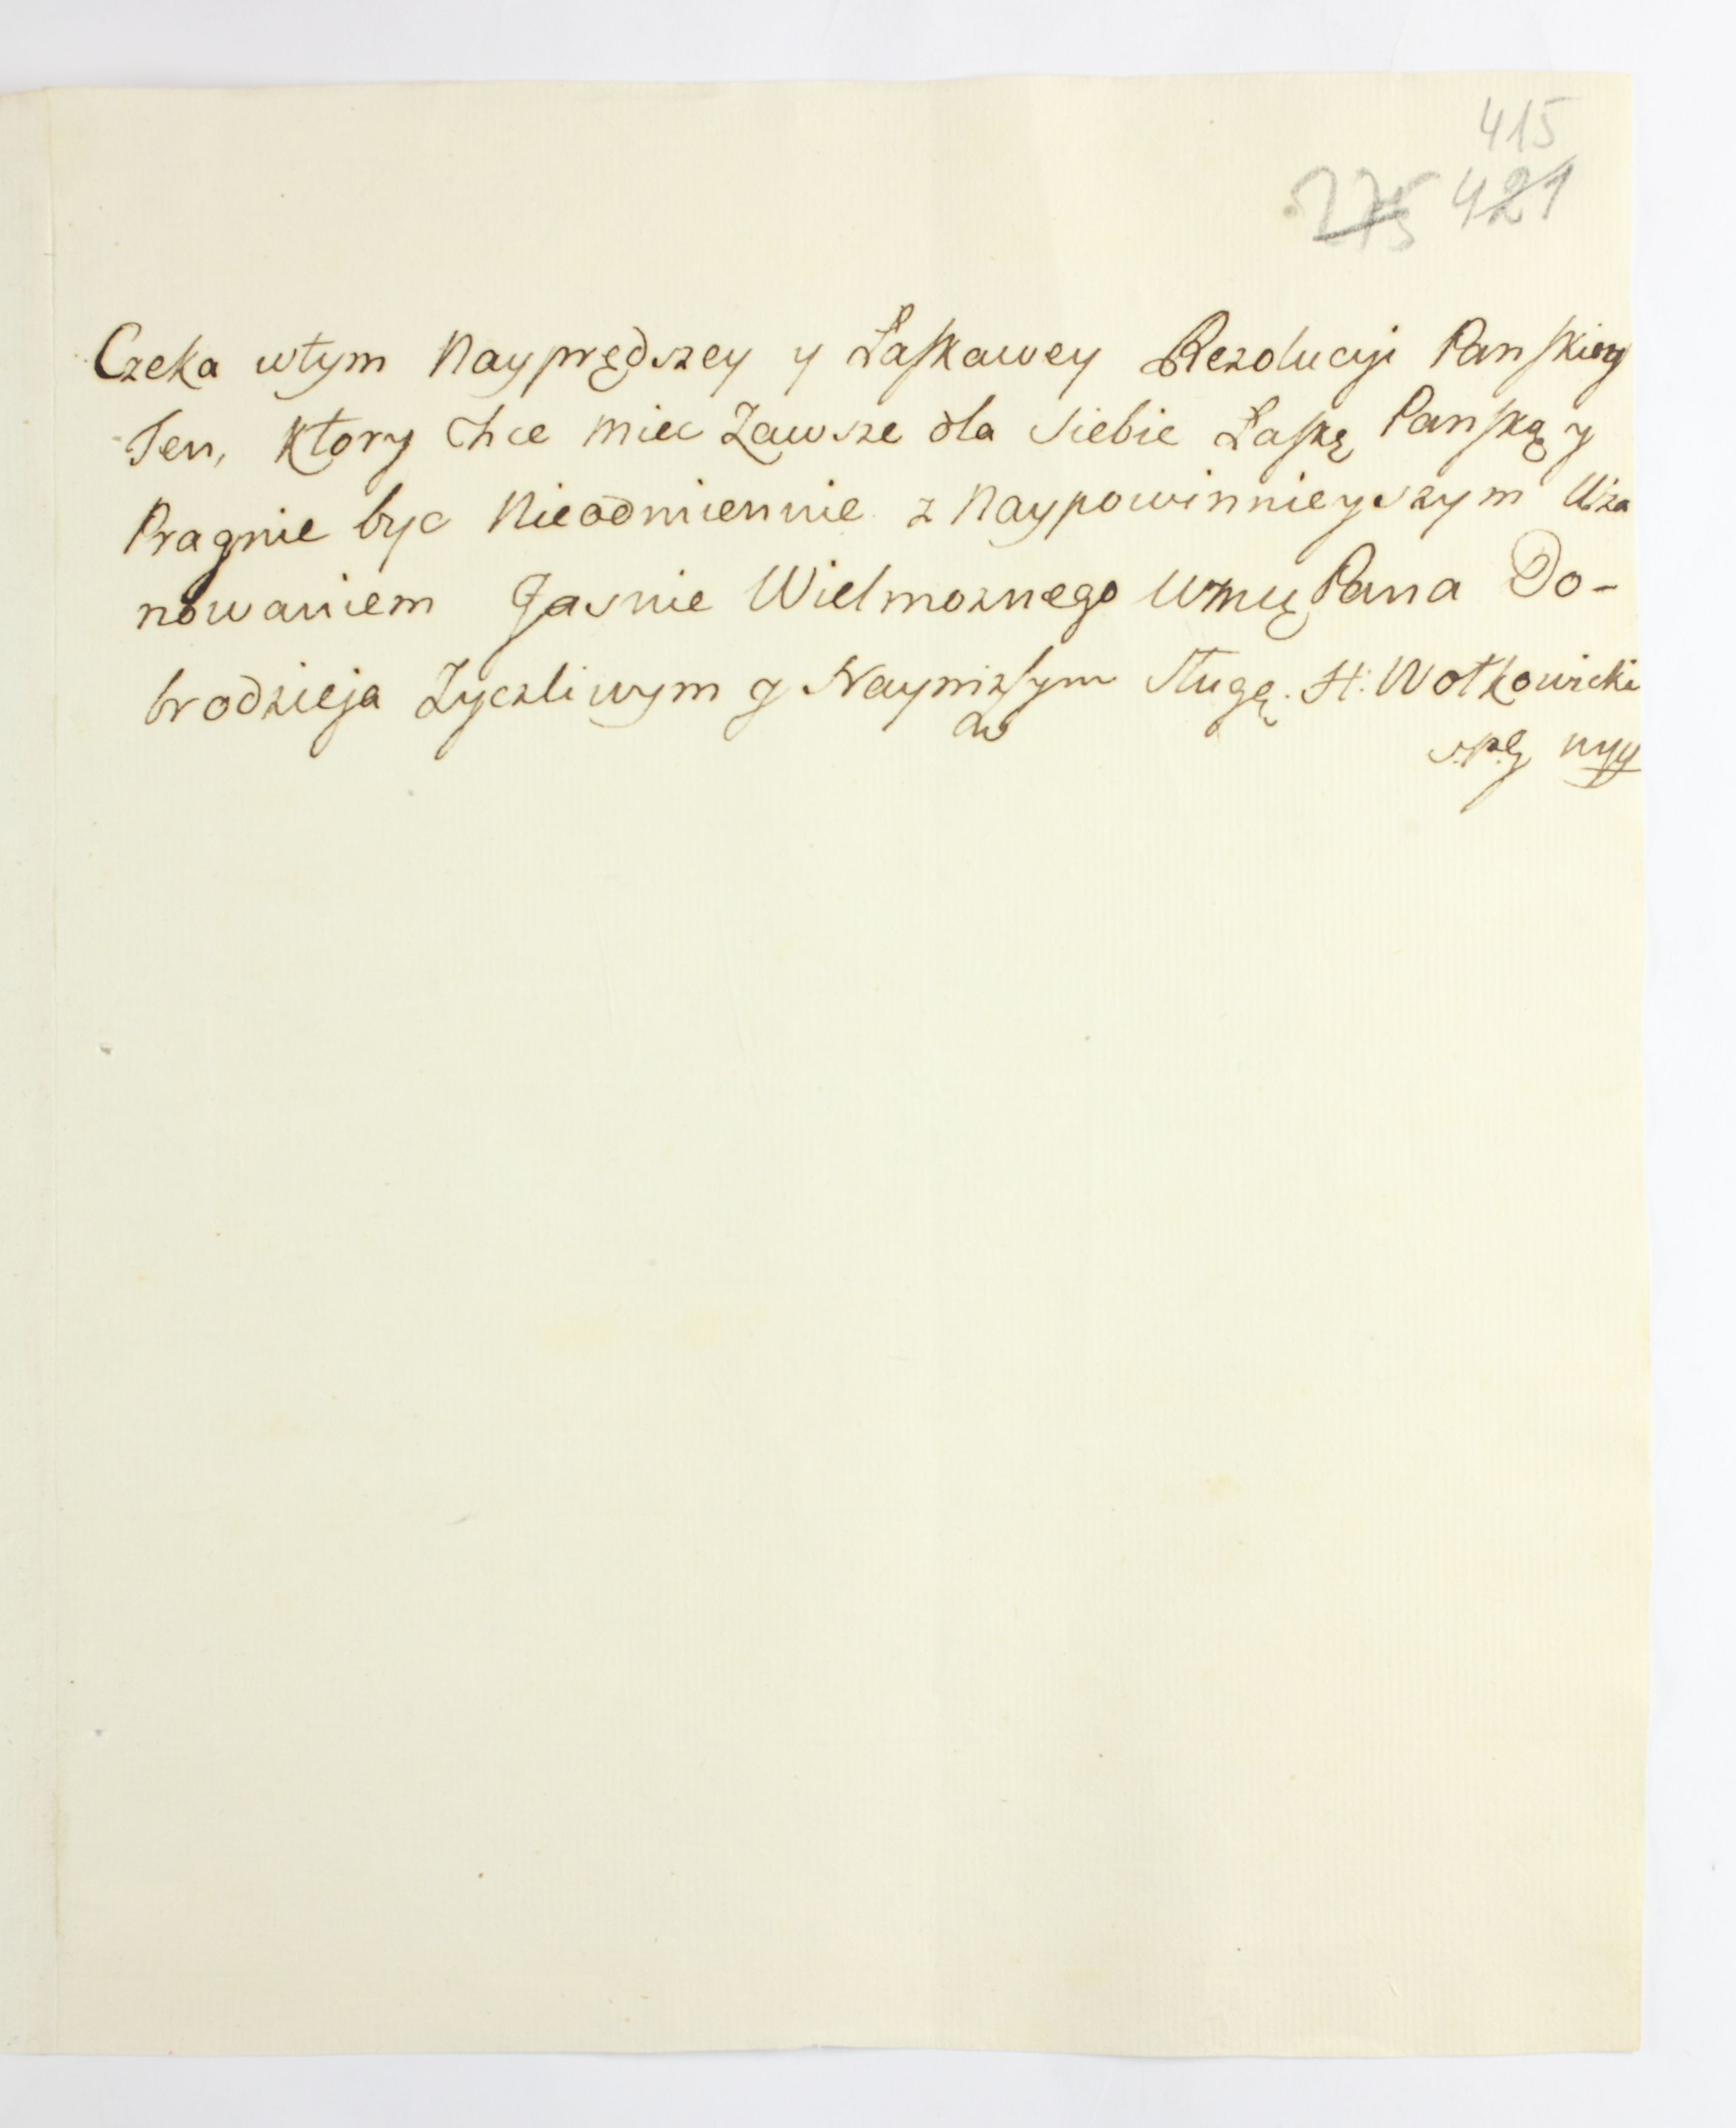 415
275 421
Czeka wtym Nayprędszey y Łaskawey Rezolucyi Panskiey
Ten, Ktory Chce miec Zawsze dla siebie Łaskę Panską y
Pragnie byc Nieodmiennie z Naypowinnieyszym Usza
nowaniem Jasnie Wielmoznego Wmę Pana Do-
brodzieja Zyczliwym y Nayniszym Sługą. St: Wołkowicki